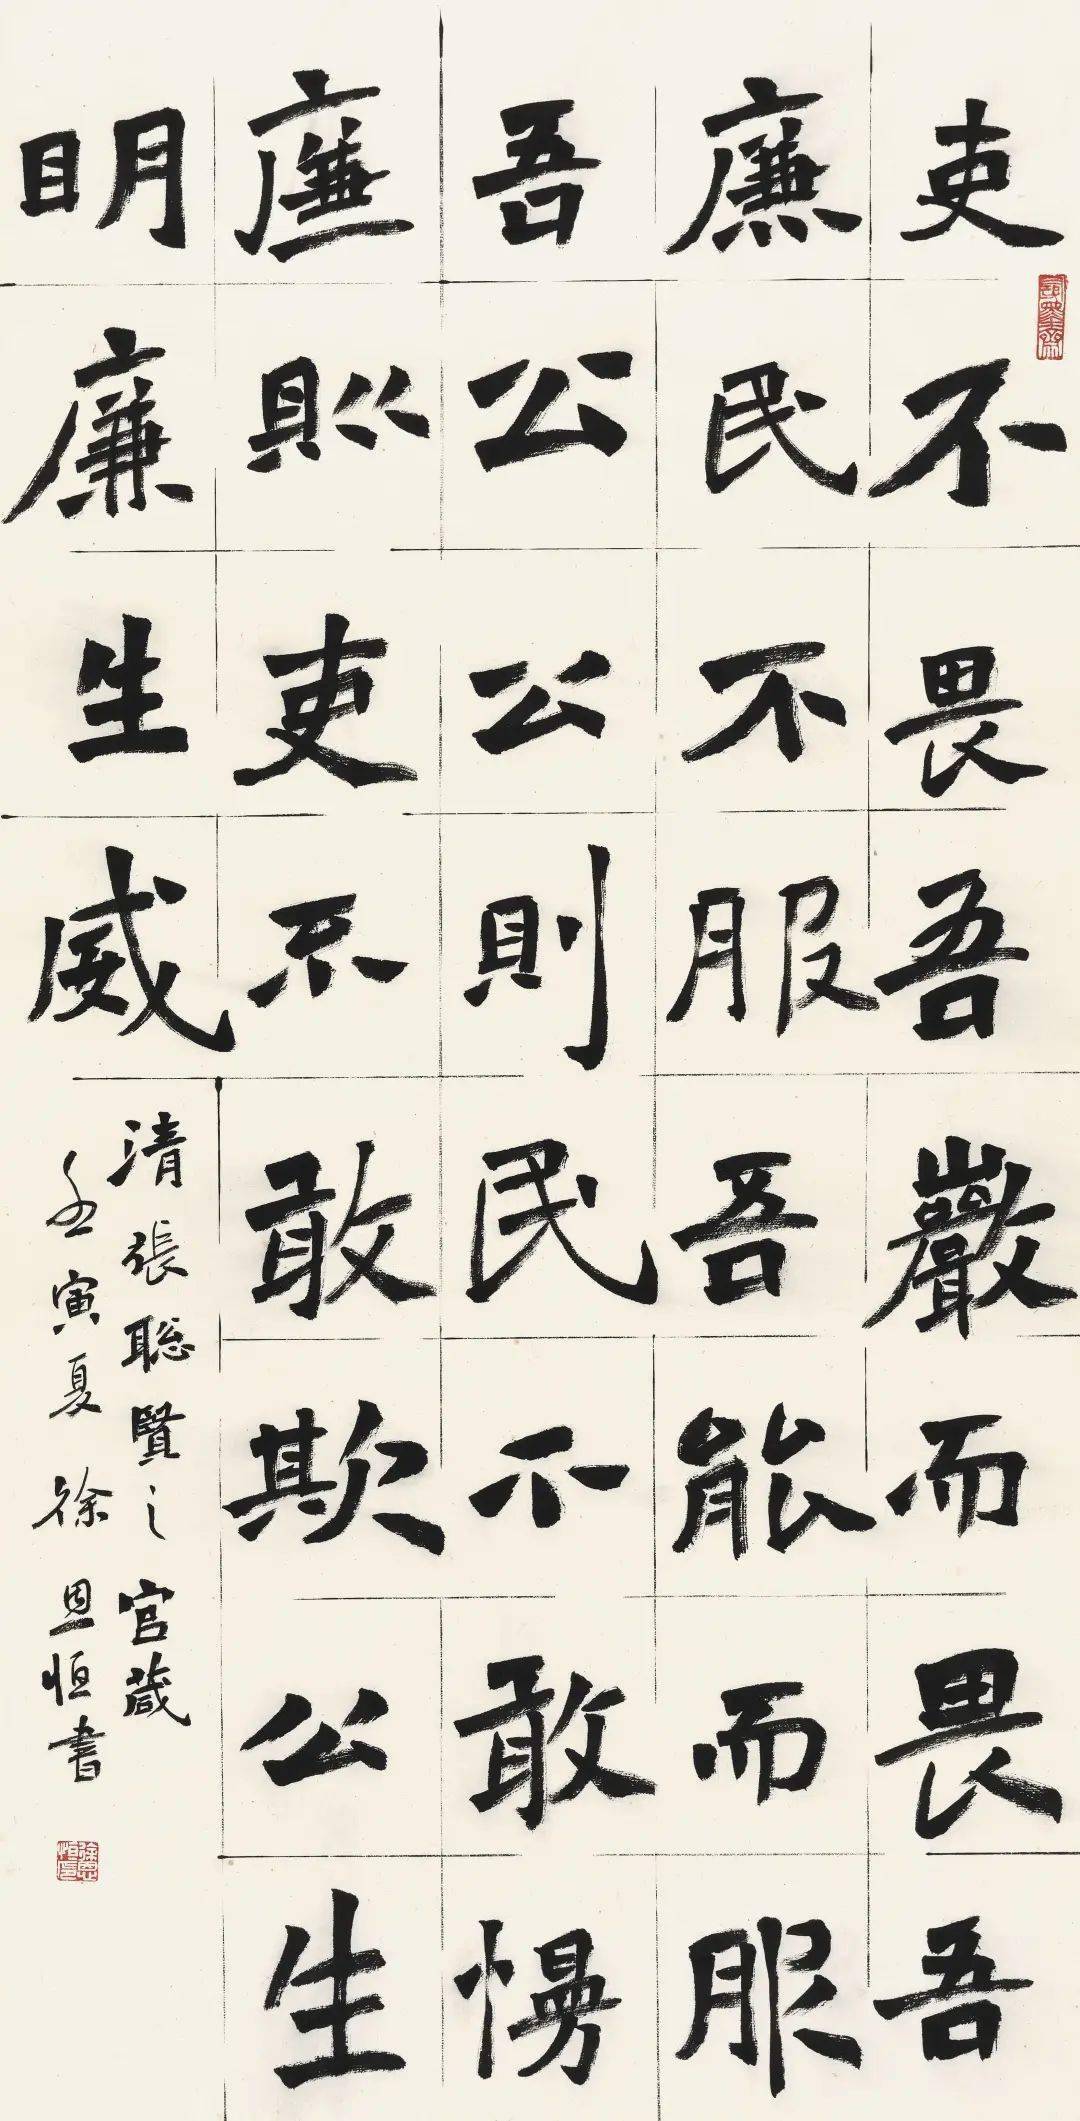 吏不畏吾嚴而畏吾
廉民不服吾能而服
吾公公則民不敢慢
廉則吏不敢欺公生
明廉生威
清張聡賢之官箴
壬寅夏徐恩恒書
徐恩恒印